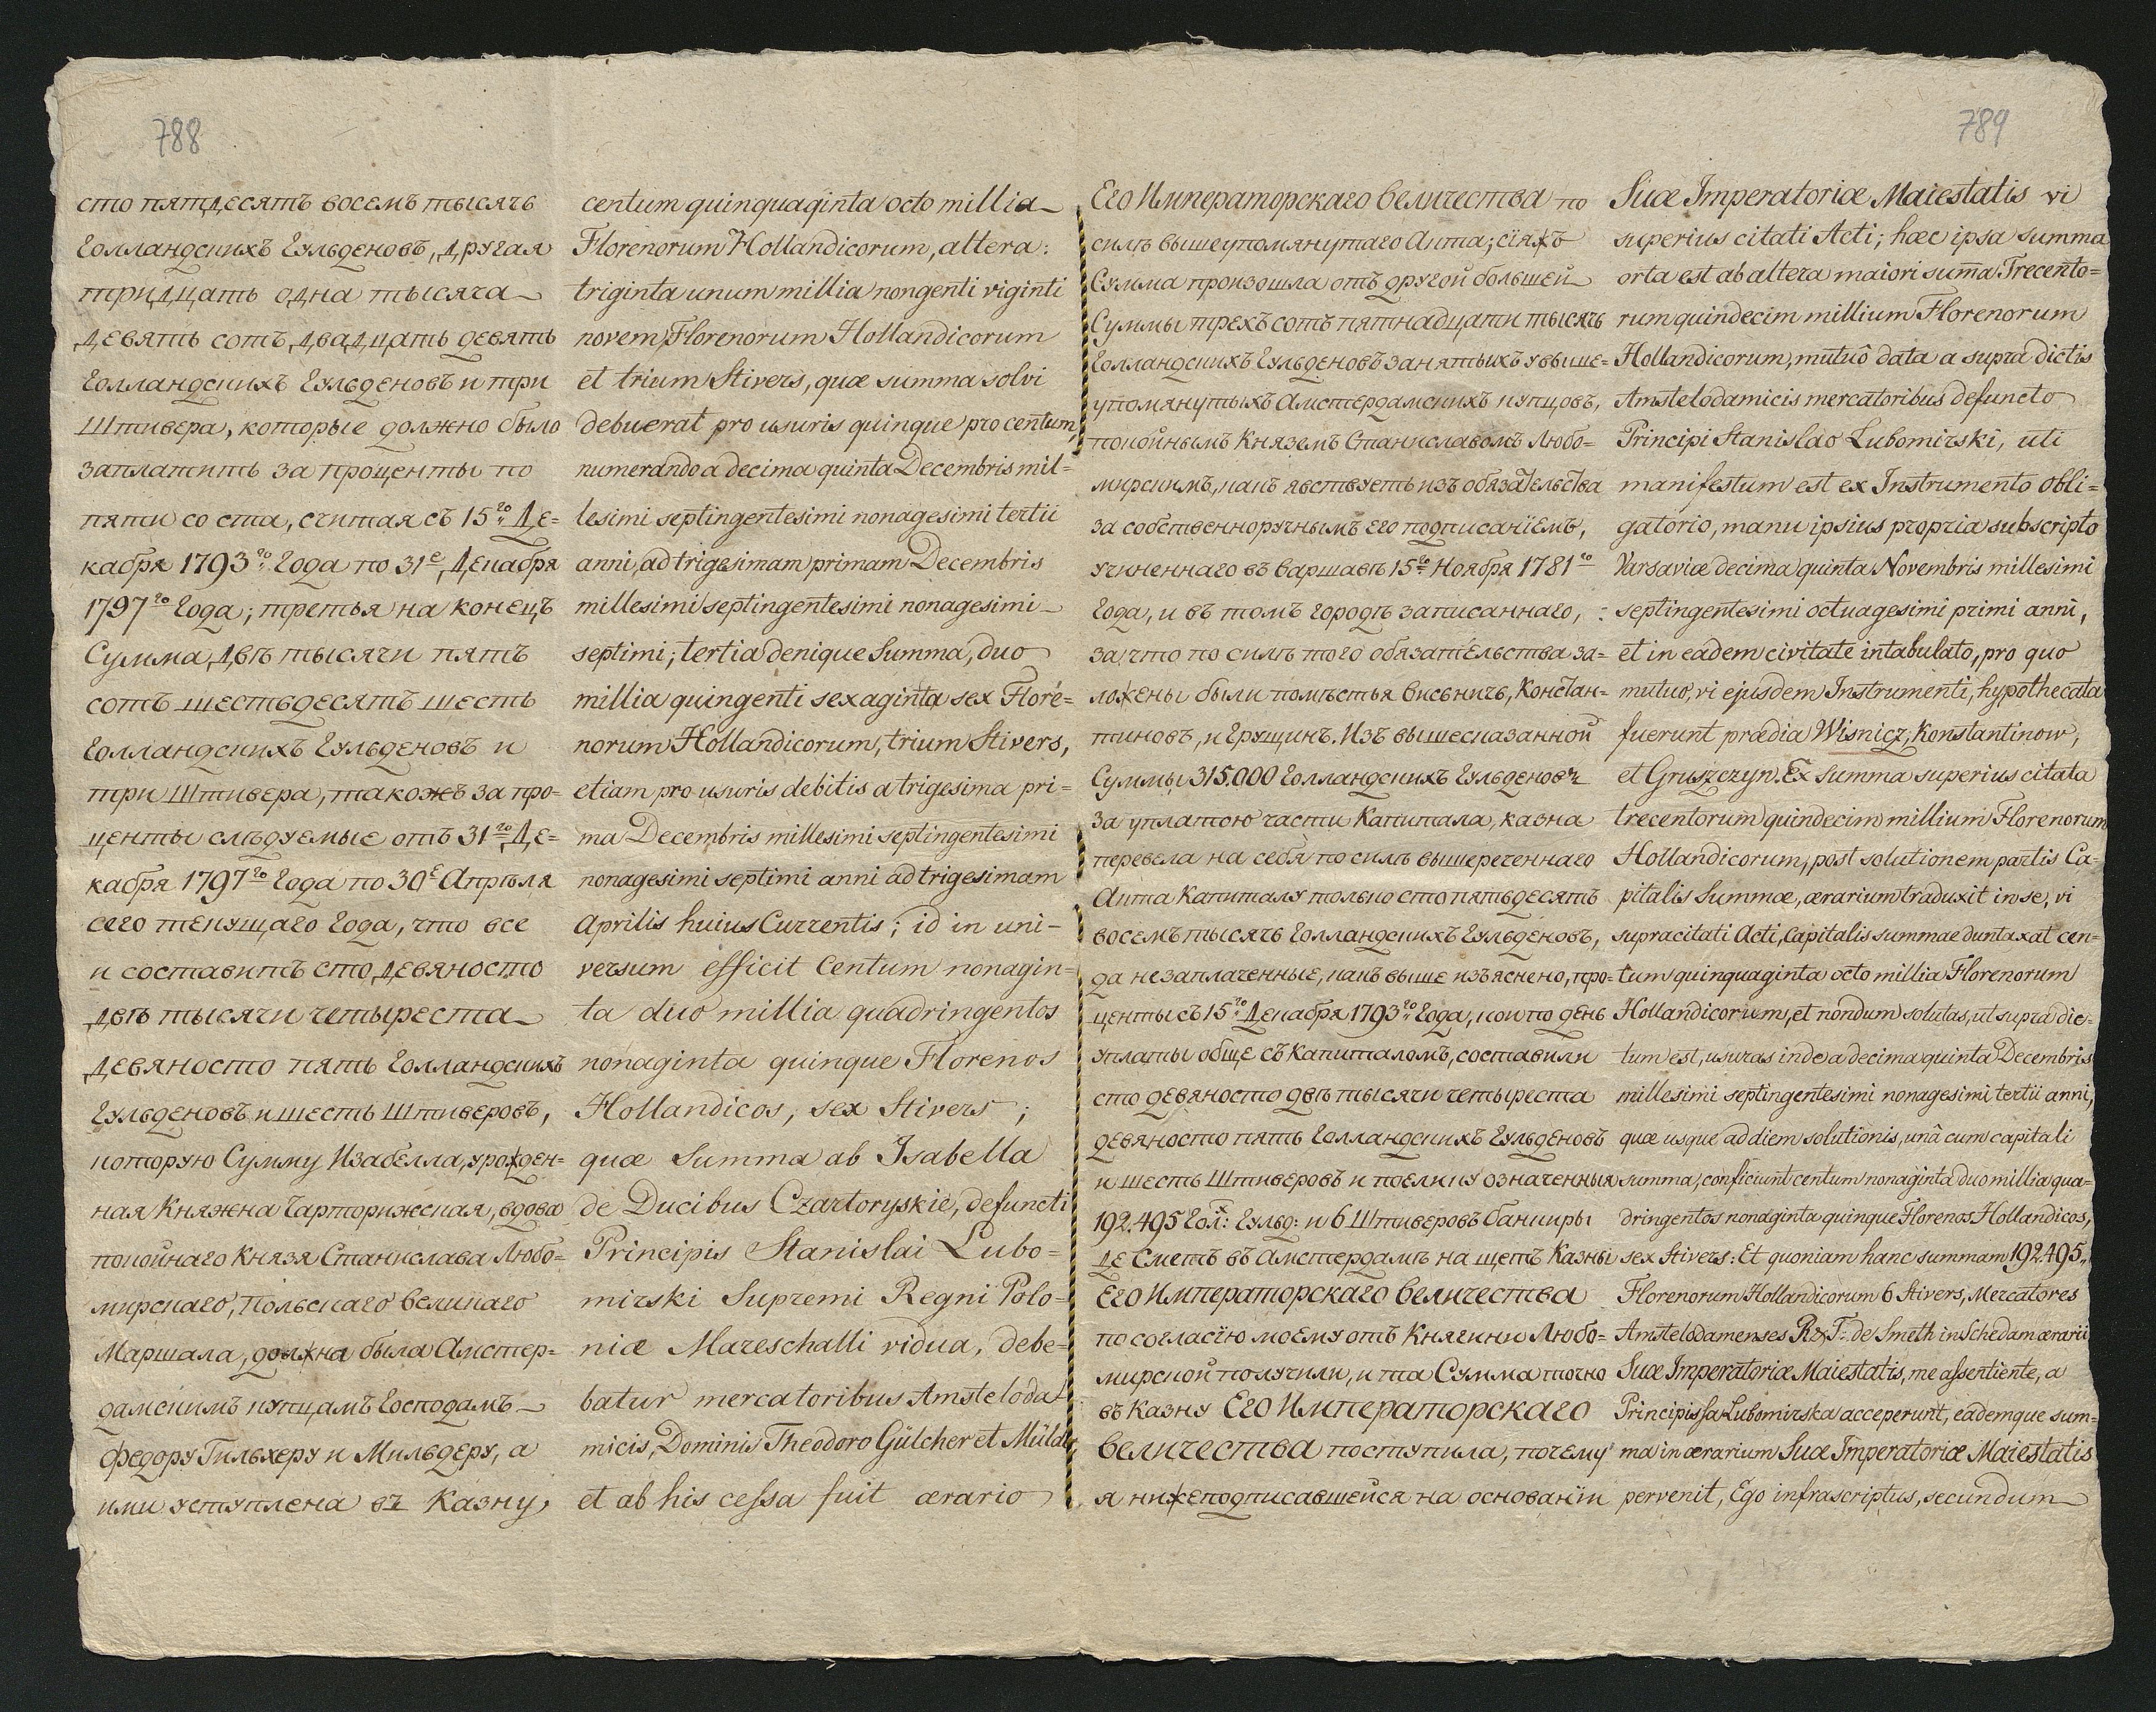 788
сто пятдесятъ восемь тысячь
Голландскихъ Гульденовъ, другая
тридцать одна тысяча
девять сотъ двадцать девять
Голландскихъ Гульденовъ и три
Штивера, которые должно было
заплатить за проценты по
пяти со ста, считая съ 15го Де=
кабря 1793го Года по 31е Декабря
1797го Года; третья на конецъ
Сумма, двѣ тысячи пять
сотъ шестьдесятъ шесть
Голландскихъ Гульденовъ и
три Штивера, такожъ за про=
центы слѣдуемые отъ 31го Де=
кабря 1797го Года по 30е Апрѣля
сего текущаго Года, что все
и составитъ сто девяносто
двѣ тысячи четыреста
девяносто пять Голландскихъ
Гульденовъ и шесть Штиверовъ,
которую Сумму Изабелла, урожден=
ная Княжна Чарторижская, вдова
покойнаго Князя Станислава Любо=
мирскаго, Польскаго великаго
Маршала, должна была Амстер=
дамскимъ купцамъ Господамъ
Федору Гильхеру и Мильдеру, а
ими уступлена въ Казну,
centum quinquaginta octo millia
Florenorum Hollandicorum, altera:
triginta unum millia nongenti viginti
novem Florenorum Hollandicorum
et trium Stivers, quæ summa solvi
debuerat pro usuris quinque pro centum,
numerando a decima quinta Decembris mil=
lesimi septingentesimi nonagesimi tertii
anni, ad trigesimam primam Decembris
millesimi septingentesimi nonagesimi
septimi; tertia denique Summa, duo
millia quingenti sexaginta sex Flore=
norum Hollandicorum, trium Stivers,
etiam pro usuris debitis a trigesima pri=
ma Decembris millesimi septingentesimi
nonagesimi septimi anni ad trigesimam
Aprilis huius Currentis; id in uni-
versum efficit Centum nonagin=
ta duo millia quadringentos
nonaginta quinque Florenos
Hollandicos, sex Stivers;
quæ Summa ab Isabella
de Ducibus Czartoryskie, defuncti
Principis Stanislai Lubo=
mirski Supremi Regni Polo=
niæ Mareschalli vidua, debe=
batur mercatoribus Amsteloda=
micis, Dominis Theodoro Gülcher et Mülder
et ab his cessa fuit ærario
789
Его Императорскаго Величества по
силѣ вышеупомянутаго Акта; сїяжъ
Сумма произошла отъ другой большей
Суммы трехъ сотъ пятнадцати тысячь
Голландскихъ Гульденовъ занятыхъ у выше=
упомянутыхъ Амстердамскихъ купцовъ,
покойнымъ Княземъ Станиславомъ Любо=
мирскимъ, какъ явствуетъ изъ обязательства
за собственноручнымъ его подписанїемъ,
учиненнаго въ Варшавѣ 15го Ноября 1781го
Года, и въ томъ городѣ записаннаго,
за что по силѣ того обязательства за=
ложены были помѣстья Висьничь, Констан=
тиновъ, и Грущинъ. Изъ вышесказанной
Суммы 315.000 Голландскихъ Гульденовъ
за уплатою части Капитала, казна
перевела на себя по силѣ вышереченнаго
Акта Капиталу только сто пятьдесятъ
восемь тысячь Голландскихъ Гульденовъ,
да незаплаченные, какъ выше изъяснено, про=
центы съ 15го Декабря 1793го Года, кои по день
уплаты обще съ Капиталомъ, составили
сто девяносто двѣ тысячи четыреста
девяносто пять Голландскихъ Гульденовъ
и шесть Штиверовъ и поелику означенныя
192.495 Голх: Гульд: и 6 Штиверовъ банкиры
де Сметъ въ Амстердамѣ на щетъ Казны
Его Императорскаго Величества
по согласїю моему отъ Княгини Любо=
мирской получили, и та Сумма точно
въ Казну Его Императорскаго
Величества поступила, почему
я нижеподписавшейся на основанїи
Suæ Imperatoriæ Maiestatis vi
superius citati Acti; hæc ipsa summa
orta est ab altera maiori suma Trecento=
rum quindecim millium Florenorum
Hollandicorum, mutuô data a supra dictis
Amstelodamicis mercatoribus defuncto
Principi Stanislao Lubomirski, uti
manifestum est ex Instrumento obli=
gatorio, manu ipsius propria subscripto
Varsaviæ decima quinta Novembris millesimi
septingentesimi octuagesimi primi anni,
et in eadem civitate intabulato, pro quo
mutuo, vi ejusdem Instrumenti, hypothecata
fuerunt prædia Wisnicz, Konstantinow,
et Gruszczyn. Ex Summa superius citata
trecentorum quindecim millium Florenorum
Hollandicorum, post solutionem partis Ca=
pitalis Summæ, ærarium traduxit in se, vi
supracitati Acti, Capitalis summae duntaxat cen=
tum quinquaginta octo millia Florenorum
Hollandicorum, et nondum solutas, ut supra dic=
tum est, usuras inde a decima quinta Decembris
millesimi septingentesimi nonagesimi tertii anni,
quæ usque ad diem solutionis, unâ cum capitali
summa, conficiunt centum nonaginta duo millia qua=
dringentos nonaginta quinque Florenos Hollandicos,
sex Stivers: Et quoniam hanc summam 192.495,,
Florenorum Hollandicorum 6 Stivers, Mercatores
Amstelodamenses R. & T. de Smeth in Schedam ærarii
Suæ Imperatoriæ Maiestatis, me assentiente, a
Principissa Lubomirska acceperunt, eademque sum=
ma in ærarium Suæ Imperatoriæ Maiestatis
pervenit, Ego infrascriptus, secundum